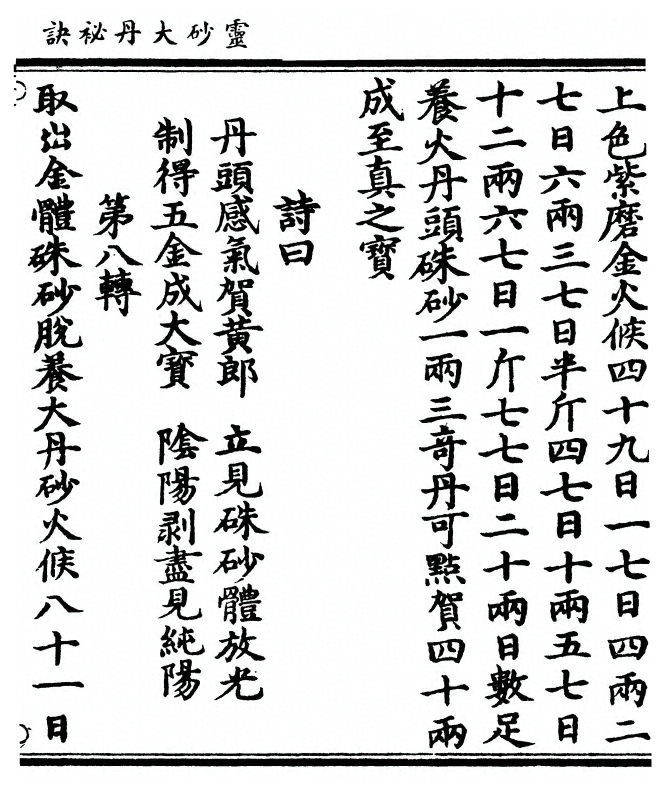 靈砂大丹祕訣
上色紫磨金火候四十九日一七日四兩二
七日六兩三七日半斤四七日十兩五七日
十二兩六七日一斤七七日二十兩日數足
養火丹頭硃砂一兩三竒丹可點賀四十兩
成至真之寳
詩曰
丹頭感氣賀黃郎　立見硃砂體放光
制得五金成大寳　陰陽剥盡見純陽
第八轉
取出金體硃砂脫養大丹砂火候八十一日